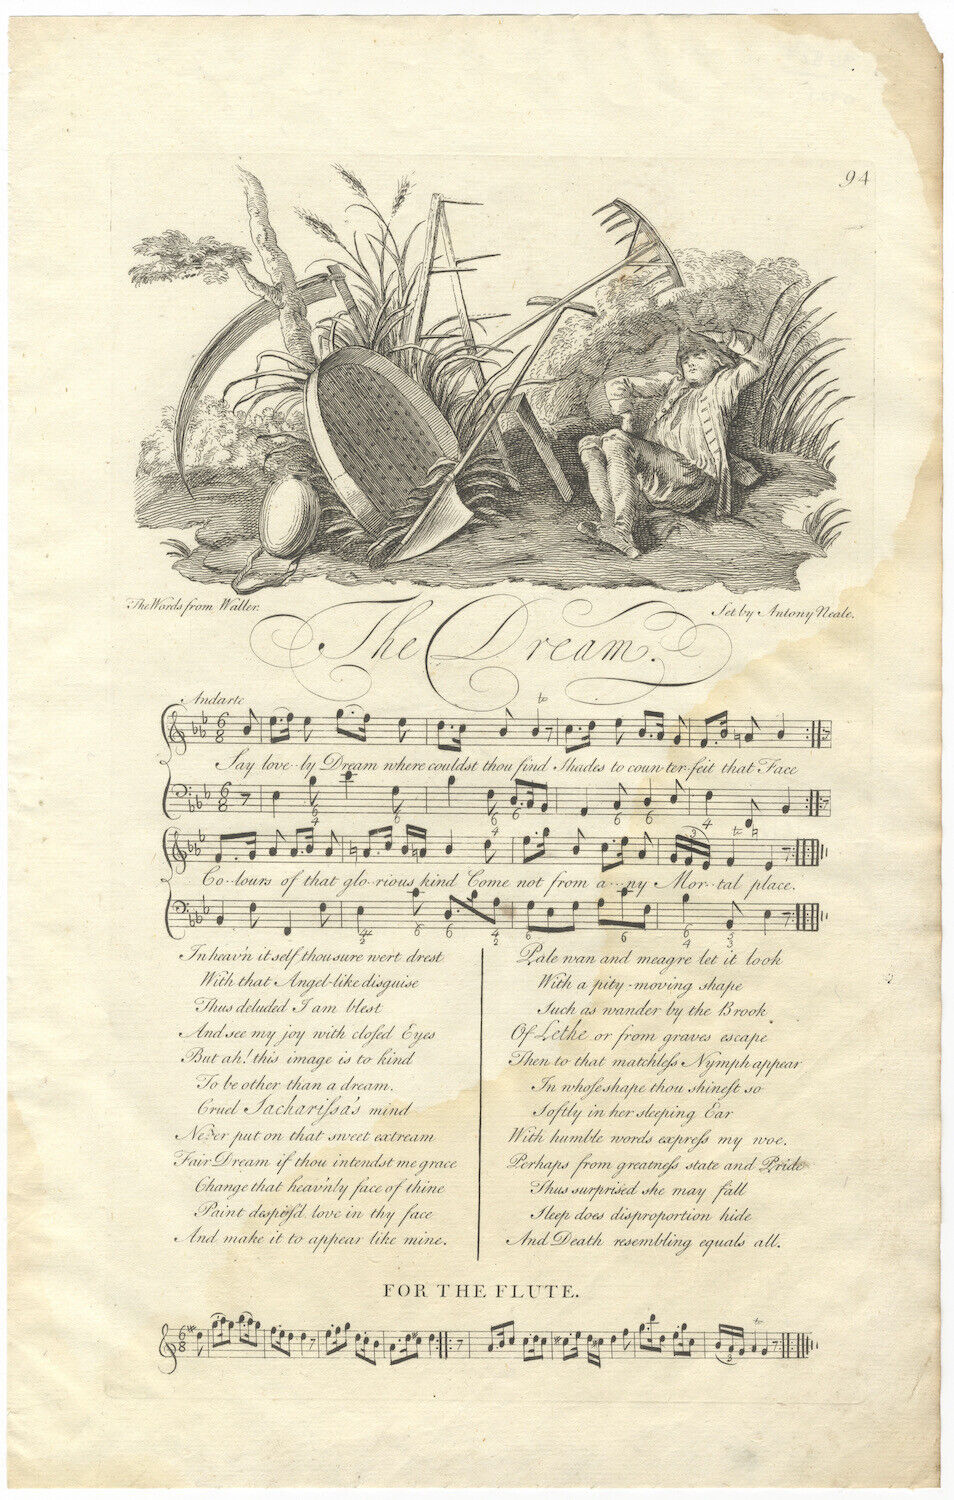 94
The Words from Waller.
Set by Antony Neale.
The Dream.
Andarte
tr
6
8
Say love-ly Dream where couldst thou find Shades to coun-ter-feit that Face
Co-lours of that glo-rious kind Come not from a-ny Mor-tal place.
In heav'n it self thou sure wert drest
With that Angel-like disguise
Thus deluded I am blest
And see my joy with closed Eyes
But ah! this image is to kind
To be other than a dream.
Cruel Sacharissa's mind
Never put on that sweet extream
Fair Dream if thou intendst me grace
Change that heav'nly face of thine
Paint despis'd love in thy face
And make it to appear like mine.
Pale wan and meagre let it look
With a pity-moving shape
Such as wander by the Brook
Of Lethe or from graves escape
Then to that matchless Nymph appear
In whose shape thou shinest so
Softly in her sleeping Ear
With humble words express my woe.
Perhaps from greatness state and Pride
Thus surprised she may fall
Sleep does disproportion hide
And Death resembling equals all.
FOR THE FLUTE.